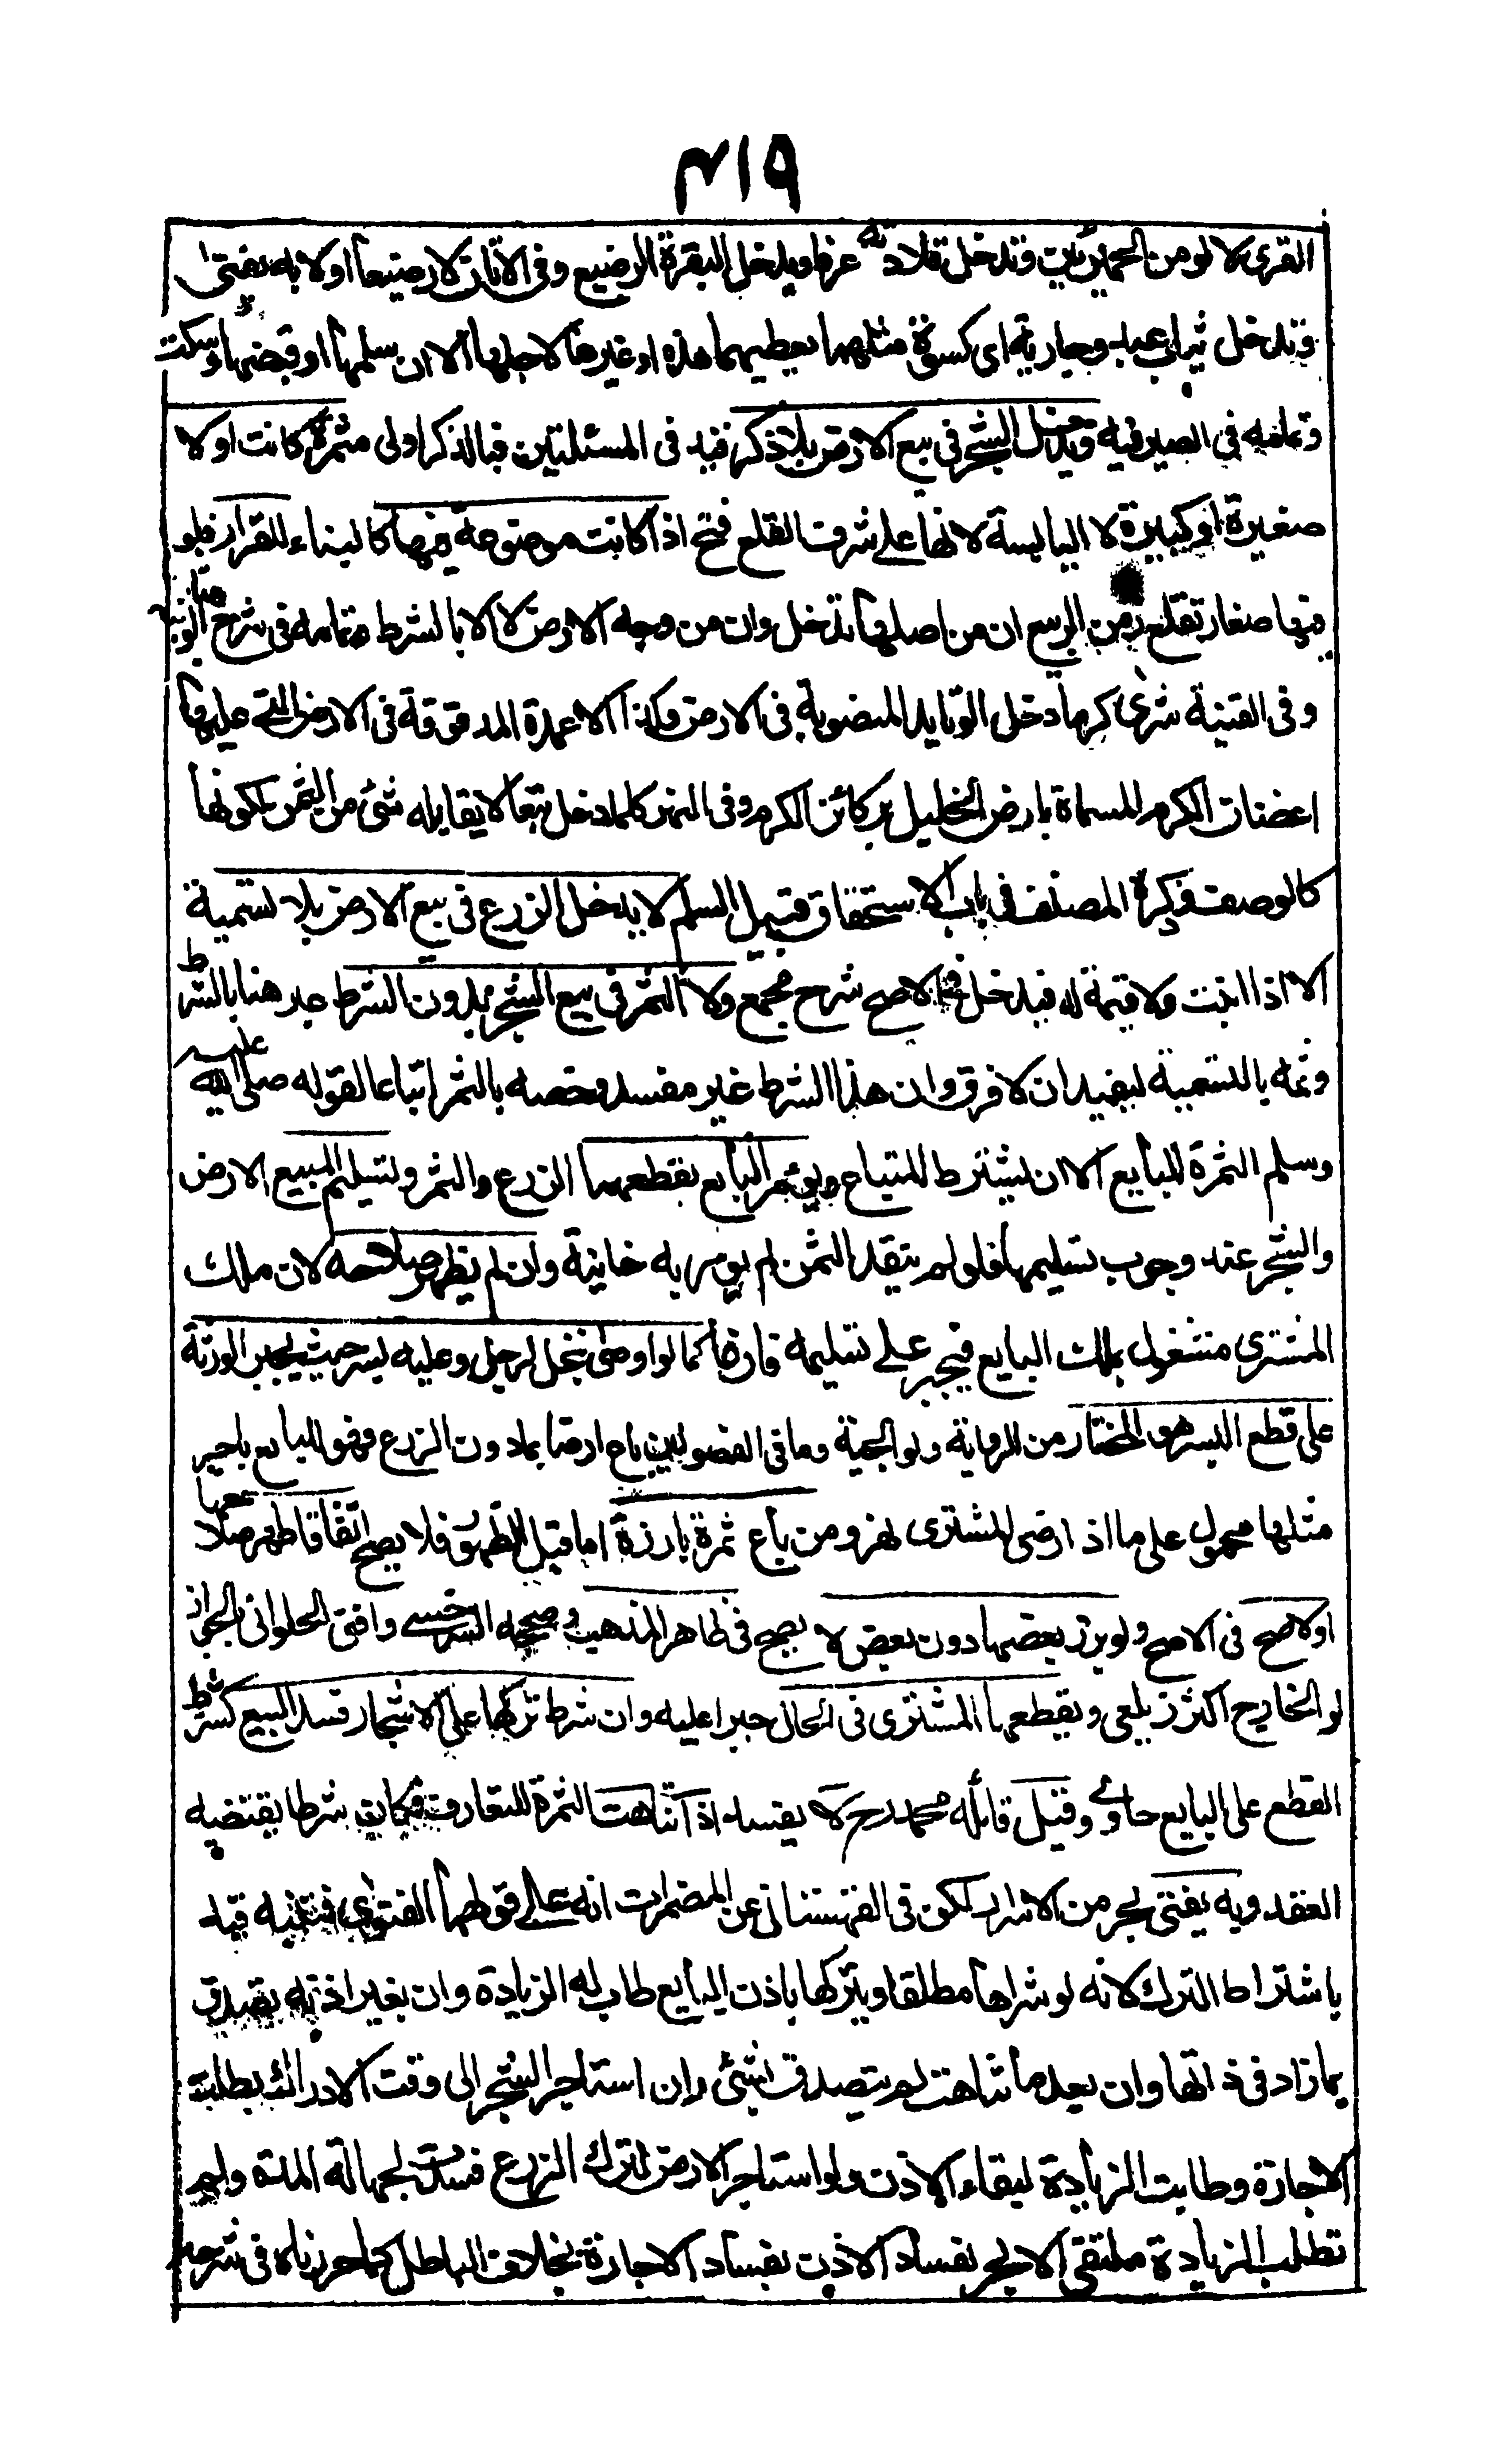 ٣١٩
القرى لا لو من الحميريين وتدخل قلادته عرفا ويدخل البقرة الرضيع وفى الاتان لا رضيعا اولا به يفتى
وتدخل ثياب عبد وجارية اى كسوة مثلهما يعطيهما هذه او غيرها لا حليها الا ان سلمها او قبضها وسكت
وتمامه فى الصيرفية ويدخل الشجر فى بيع الارض بلا ذكر قيد فى المسئلتين فبالذكر اولى مثمرة كانت اولا
صغيرة او كبيرة لا اليابسة لانها على شرف القلع فتح اذا كانت موضوعة فيها كالبناء للقرار فلو
فيها صغار تقلع زمن الربيع ان من اصلها تدخل وان من وجه الارض لا الا بالشرط وتمامه فى شرح الوهبانية
وفى القنية شرى كرما دخل الوثايل المنصوبة فى الارض وكذا الاعمدة المدفوقة فى الارض التى عليها
اغصان الكرم المسماة بارض الخليل بركائز الكرم وفى النهر كلما دخل تبعا لا يقابله شئ من الثمن لكونها
كالوصف وذكره المصنف فى باب الاستحقاق قبيل السلم لا يدخل الزرع فى بيع الارض بلا تسمية
الا اذا نبت ولا قيمة له فيدخل فى الاصح شرح مجمع ولا الثمر فى بيع الشجر بدون الشرط عبر هنا بالشرط
وثمه بالتسمية ليفيد ان لا فرق وان هذا الشرط غير مفسد وخصه بالثمر اتباعا لقوله صلى الله عليه
وسلم الثمرة للبايع الا ان يشترط المتباع ويؤمر البايع بقطعهما الزرع والثمر وتسليم المبيع الارض
والشجر عند وجوب تسليمها فلو لم ينقد الثمن لم يومر به خانية وان لم يظهر صلاحه لان ملك
المشترى مشغول بملك البايع فيجبر على تسليمه فارغا كما لو اوصى بنخل لرجل وعليه بسر حيث يجبر الورثة
على قطع البسر هو المختار من الرواية ولوالجية وما فى الفصولين باع ارضا بدون الزرع فهو للبايع باجر
مثلها محمول على ما اذا رضى المشترى نهر ومن باع ثمرة بارزة اما قبل الظهور فلا يصح اتفاقا ظهر صلاحها
اولا صح فى الاصح ولو برز بعضها دون بعض لا يصح فى ظاهر المذهب وصححه السرخسى وافتى الحلوانى بالجواز
لو الخارج اكثر زيلعى ويقطعها المشترى فى الحال جبرا عليه وان شرط تركها على الاشجار فسد البيع كشرط
القطع على البايع حاوى وقيل قائله محمد رح لا يفسد اذا تناهت الثمرة للتعارف فكان شرطا يقتضيه
العقد وبه يفتى بحر من الاسرار لكن فى القهستانى عن المضمرات انه على قولهما الفتوى فتنبه قيد
باشتراط الترك لانه لو شراها مطلقا وتركها باذن البايع طاب له الزيادة وان بغير اذنه تصدق
بما زاد فى ذاتها وان بعد ما تناهت لم يتصدق بشئ وان استاجر الشجر الى وقت الادراك بطلت
الاجارة وطابت الزيادة لبقاء الاذن ولو استاجر الارض لترك الزرع فسدت لجهالة المدة ولم
تطب الزيادة ملتقى الابحر لفساد الاذن بفساد الاجارة بخلاف الباطل كما حررناه فى شرحه